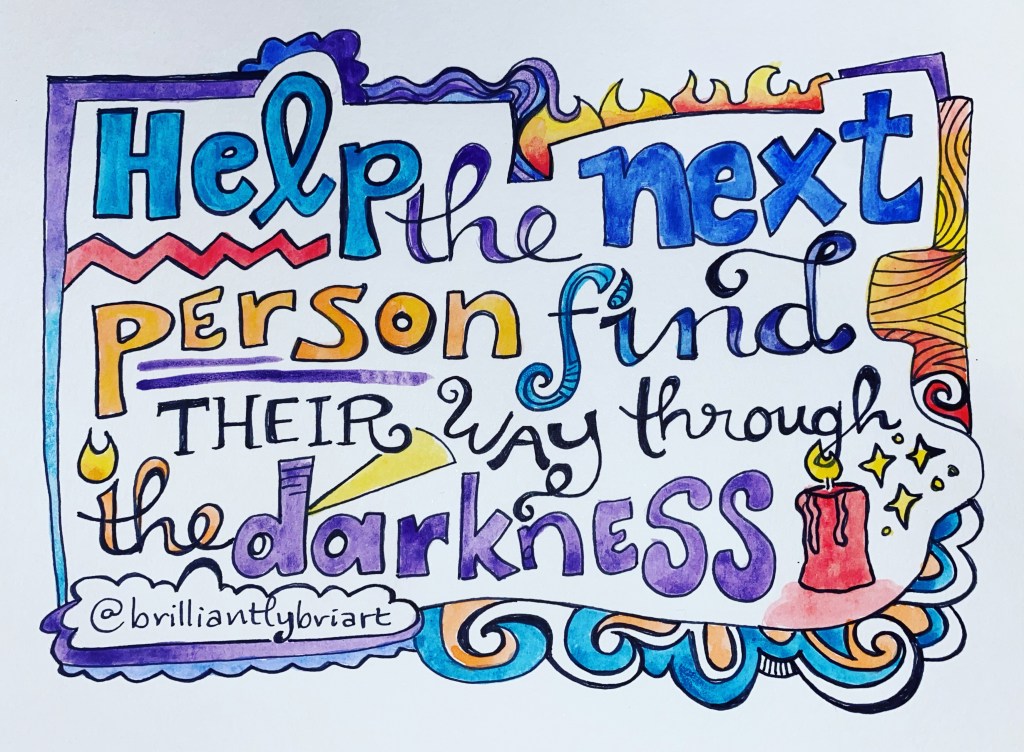 Help the next
person find
THEIR WAY through
the darkness
@brilliantlybriart